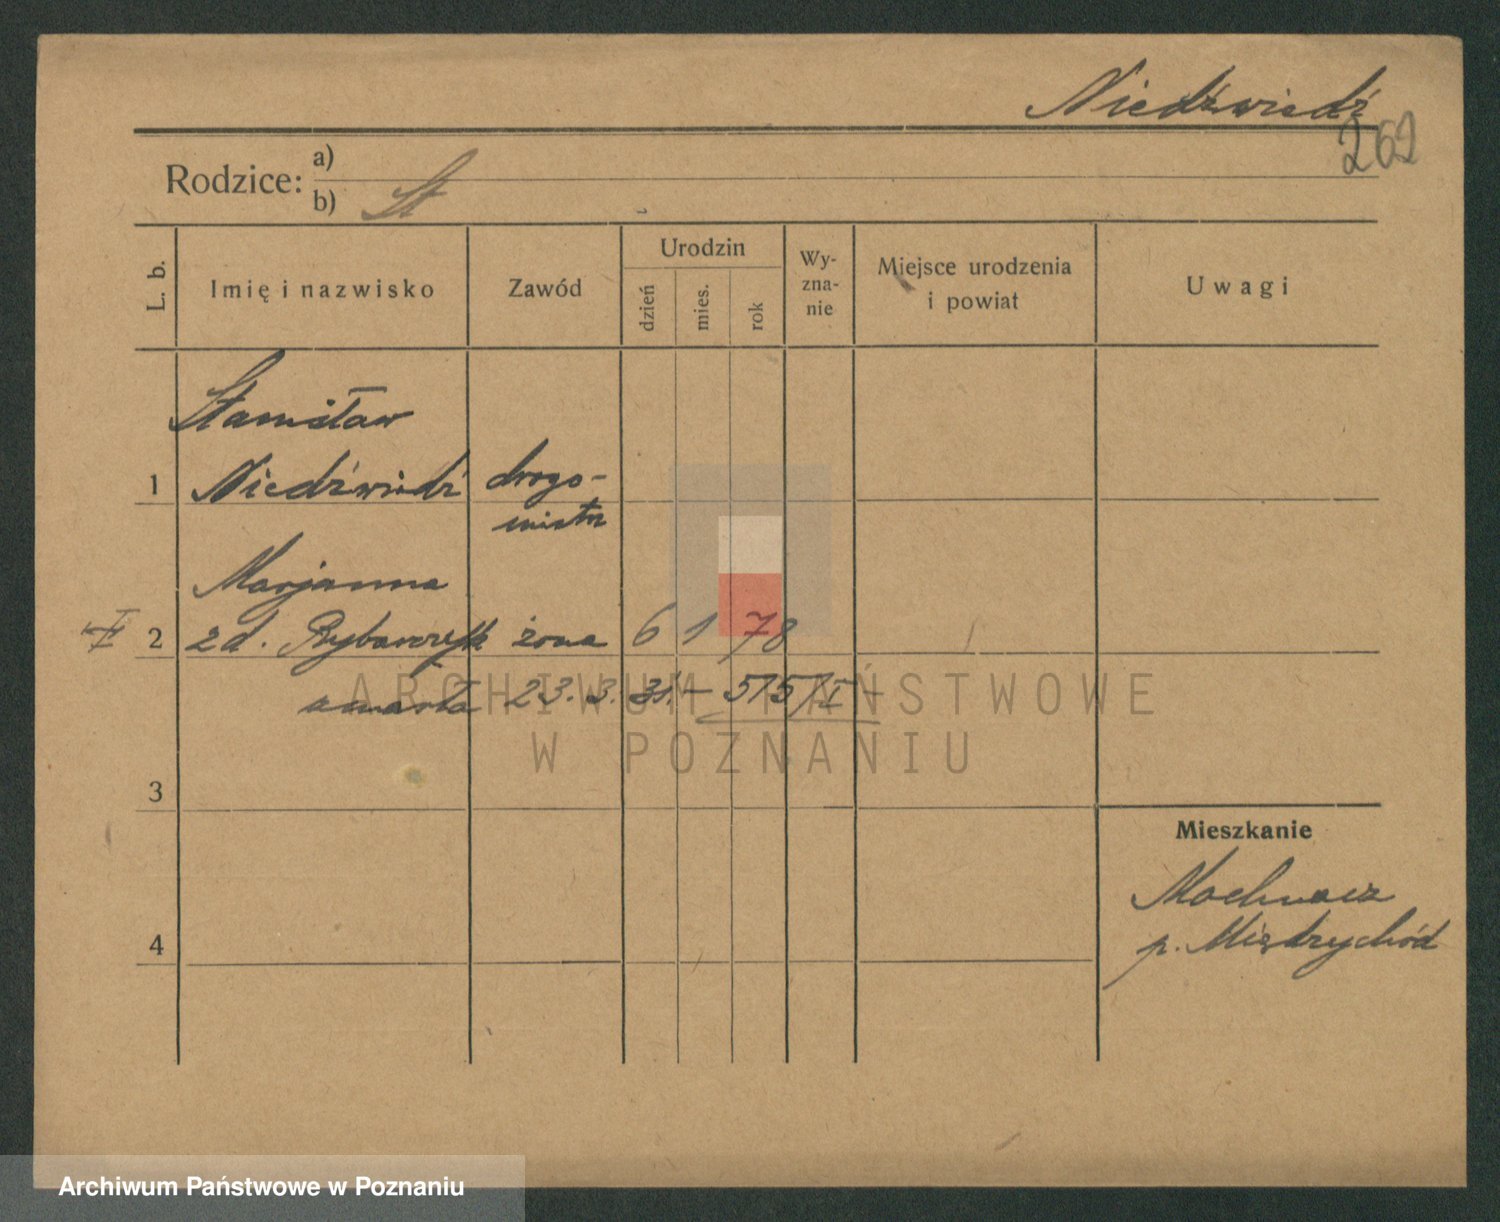 Niedźwiedź
262
Rodzice: a)
b) St
L. b.
Imię i nazwisko
Zawód
Urodzin
dzień
mies.
rok
Wy-
zna-
nie
Miejsce urodzenia
i powiat
Uwagi
Stanisław
1 Niedźwiedź drogo-
mistrz
Marjanna
2 zd. Rybarczyk żona 6 1 78
umarła 23. 3. 31. – 515/I
3
4
Mieszkanie
Mochnacz
p. Międzychód
ARCHIWUM PAŃSTWOWE
W POZNANIU
Archiwum Państwowe w Poznaniu